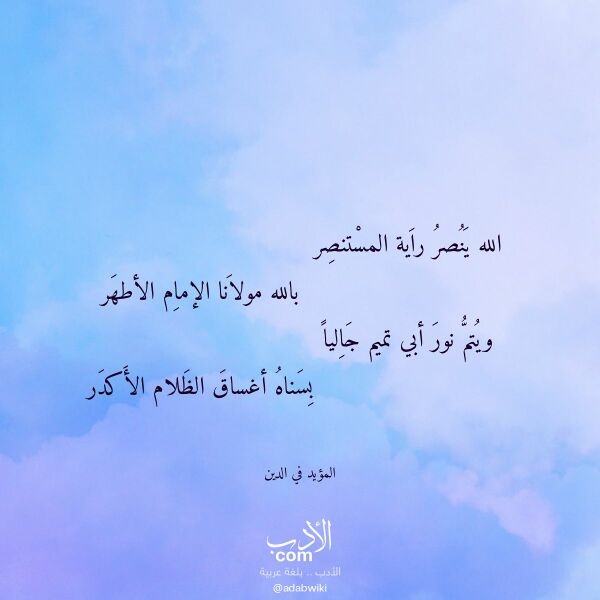 الله يَنُصرُ راَية المسْتنصِر
بالله مولاَنا الإمامِ الأطهَر
ويُتمُّ نورَ أبي تميم جَالِياً
بِسَناهُ أغساقَ الظَلام الأَكدَر
المؤيد في الدين
الأدب
com
الأدب .. بلغة عربية
@adabwiki